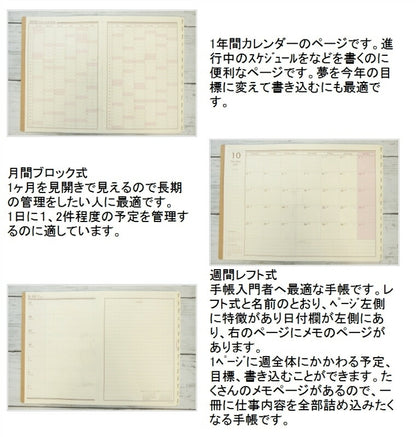 1年間カレンダーのページです。進
行中のｽｹｼﾞｭｰﾙをなどを書くのに
便利なページです。夢を今年の目
標に変えて書き込むにも最適で
す。
月間ブロック式
1ヶ月を見開きで見えるので長期
の管理をしたい人に最適です。
1日に1、2件程度の予定を管理す
るのに適しています。
10
週間レフト式
手帳入門者へ最適な手帳です。レ
フト式と名前のとおり、ﾍﾟｰｼﾞ左側
に特徴があり日付欄が左側にあ
り、右のページにメモのページが
あります。
1ﾍﾟｰｼﾞに週全体にかかわる予定、
目標、書き込むことができます。た
くさんのメモページがあるので、一
冊に仕事内容を全部詰め込みたく
なる手帳です。